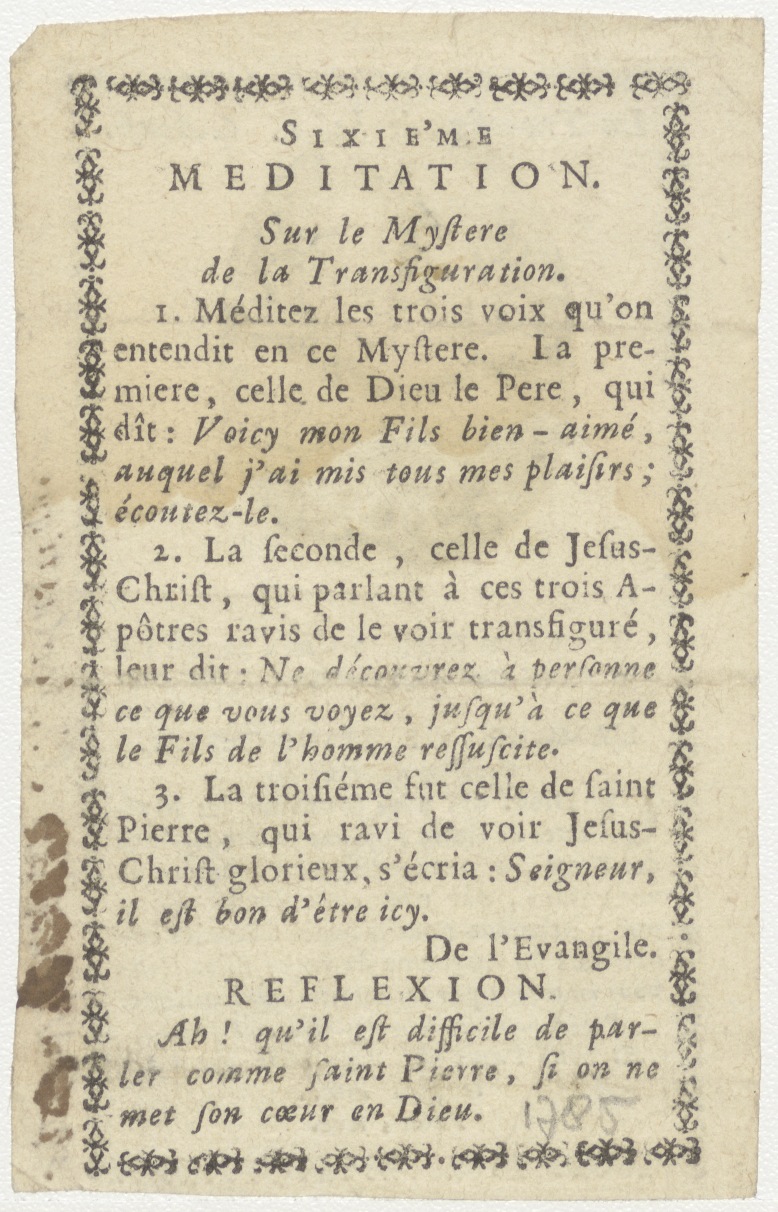 SIXIE'ME
MEDITATION.
Sur le Myſtere
de la Transfiguration.
1. Méditez les trois voix qu'on
entendit en ce Myſtere. La pre-
miere, celle de Dieu le Pere, qui
dît: Voicy mon Fils bien-aimé,
auquel j'ai mis tous mes plaiſirs;
écoutez-le.
2. La ſeconde, celle de Jeſus-
Chriſt, qui parlant à ces trois A-
pôtres ravis de le voir transfiguré,
leur dit: Ne découvrez à perſonne
ce que vous voyez, juſqu'à ce que
le Fils de l'homme reſſuſcite.
3. La troiſiéme fut celle de ſaint
Pierre, qui ravi de voir Jeſus-
Chriſt glorieux, s'écria: Seigneur,
il eſt bon d'être icy.
De l'Evangile.
REFLEXION.
Ah! qu'il eſt difficile de par-
ler comme ſaint Pierre, ſi on ne
met ſon cœur en Dieu.
1785